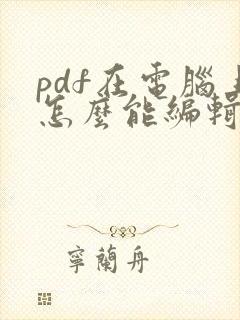 pdf在電腦上
怎麼能編輯
寧蘭舟